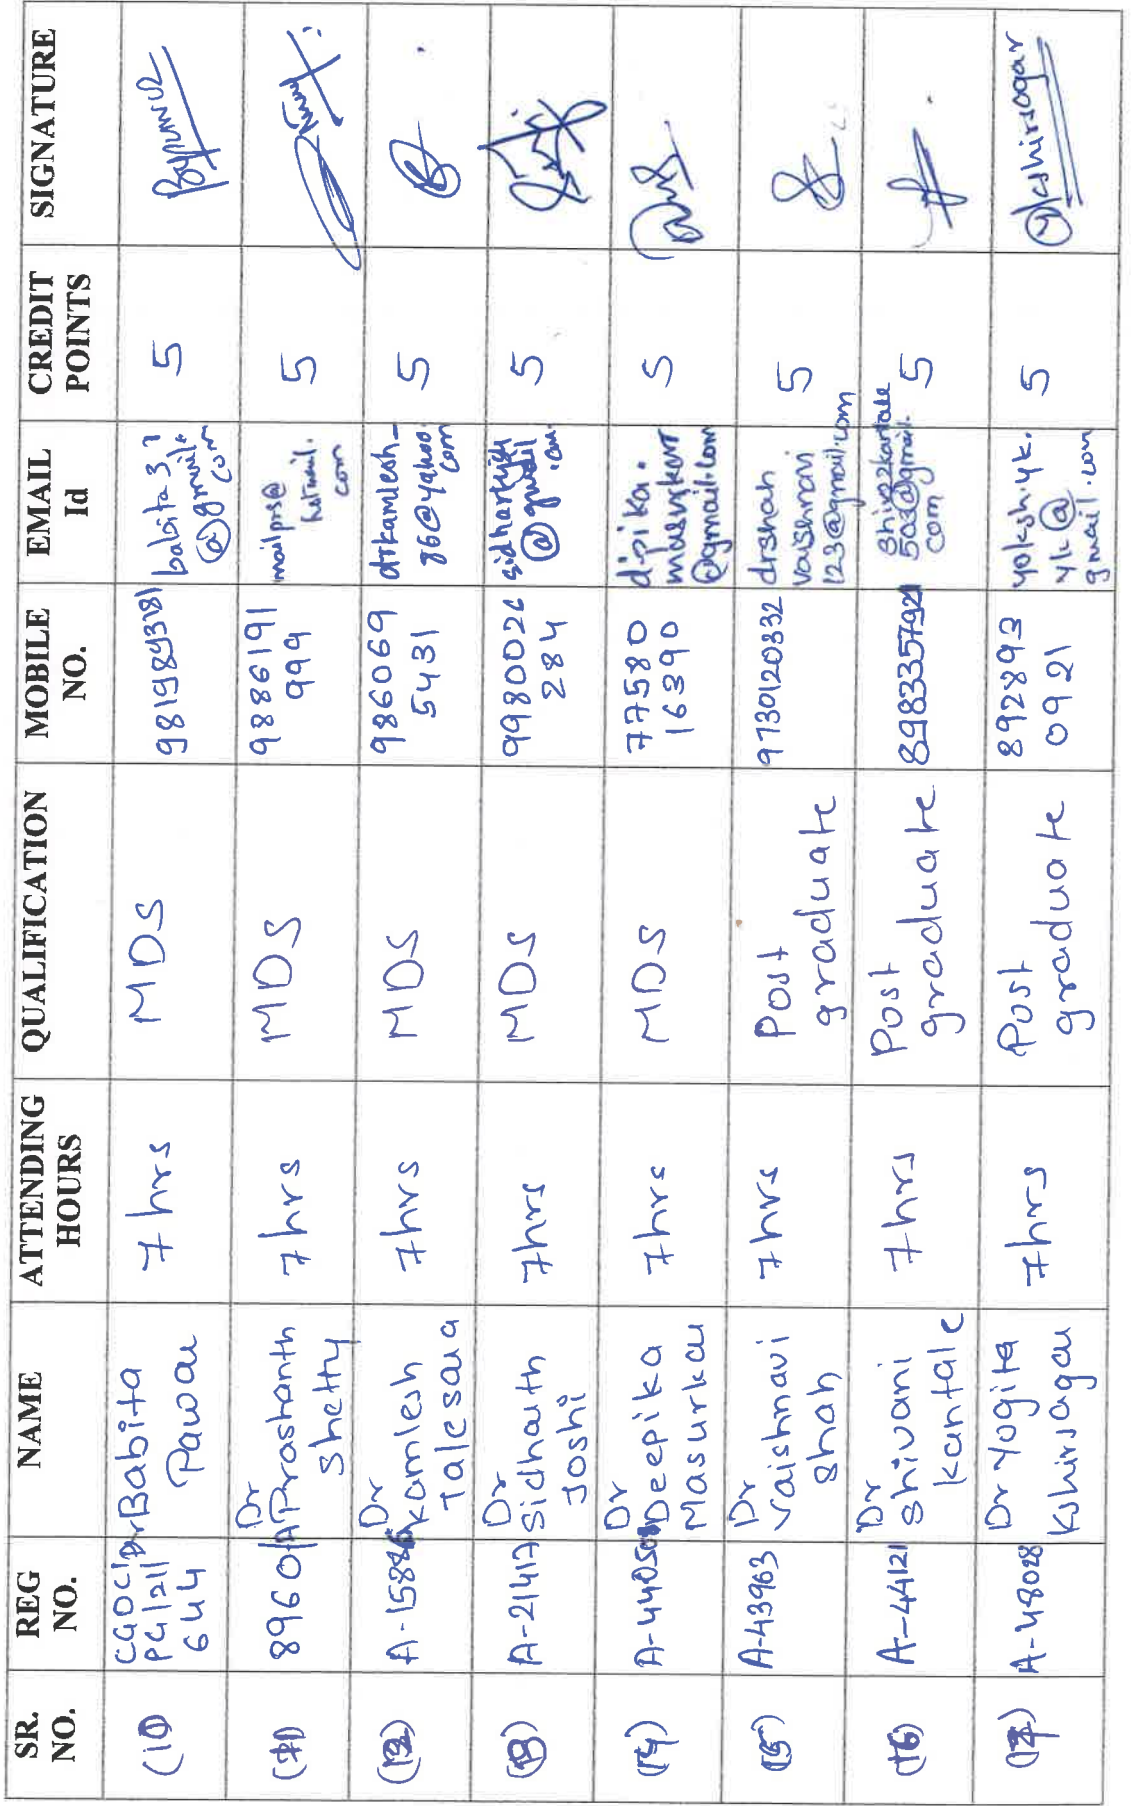 SR. NO. REG NO. NAME ATTENDING HOURS QUALIFICATION MOBILE NO. EMAIL Id CREDIT POINTS SIGNATURE
(10) CGOC/ PG/1211 644 Dr Babita Pawar 7 hrs MDS 9819893181 babita37 @gmail. com 5
(11) 8960/A Dr Prashanth Shetty 7 hrs MDS 9886191 999 mailprs@ hotmail. com 5
(12) A-15886 Dr Kamlesh Talesara 7 hrs MDS 986069 5431 drkamlesh_ 86@yahoo. com 5
(13) A-21417 Dr Sidharth Joshi 7 hrs MDS 284 @gmail .com 5
(14) A-440508 Dr Deepika Masurkar 7 hrs MDS 77580 16390 dipika. masurkar @gmail.com 5
(15) A-43963 Dr Vaishnavi Shah 7 hrs Post graduate 9730120832 drshah vaishnavi 123@gmail.com 5
(16) A-44121 Dr Shivani Kantale 7 hrs Post graduate 8983357921 503@gmail. com 5
(17) A-48028 Dr Yogita Kshirsagar 7 hrs Post graduate 892893 0921 yoksh.yk. yk@ gmail.com 5 Ykshirsagar